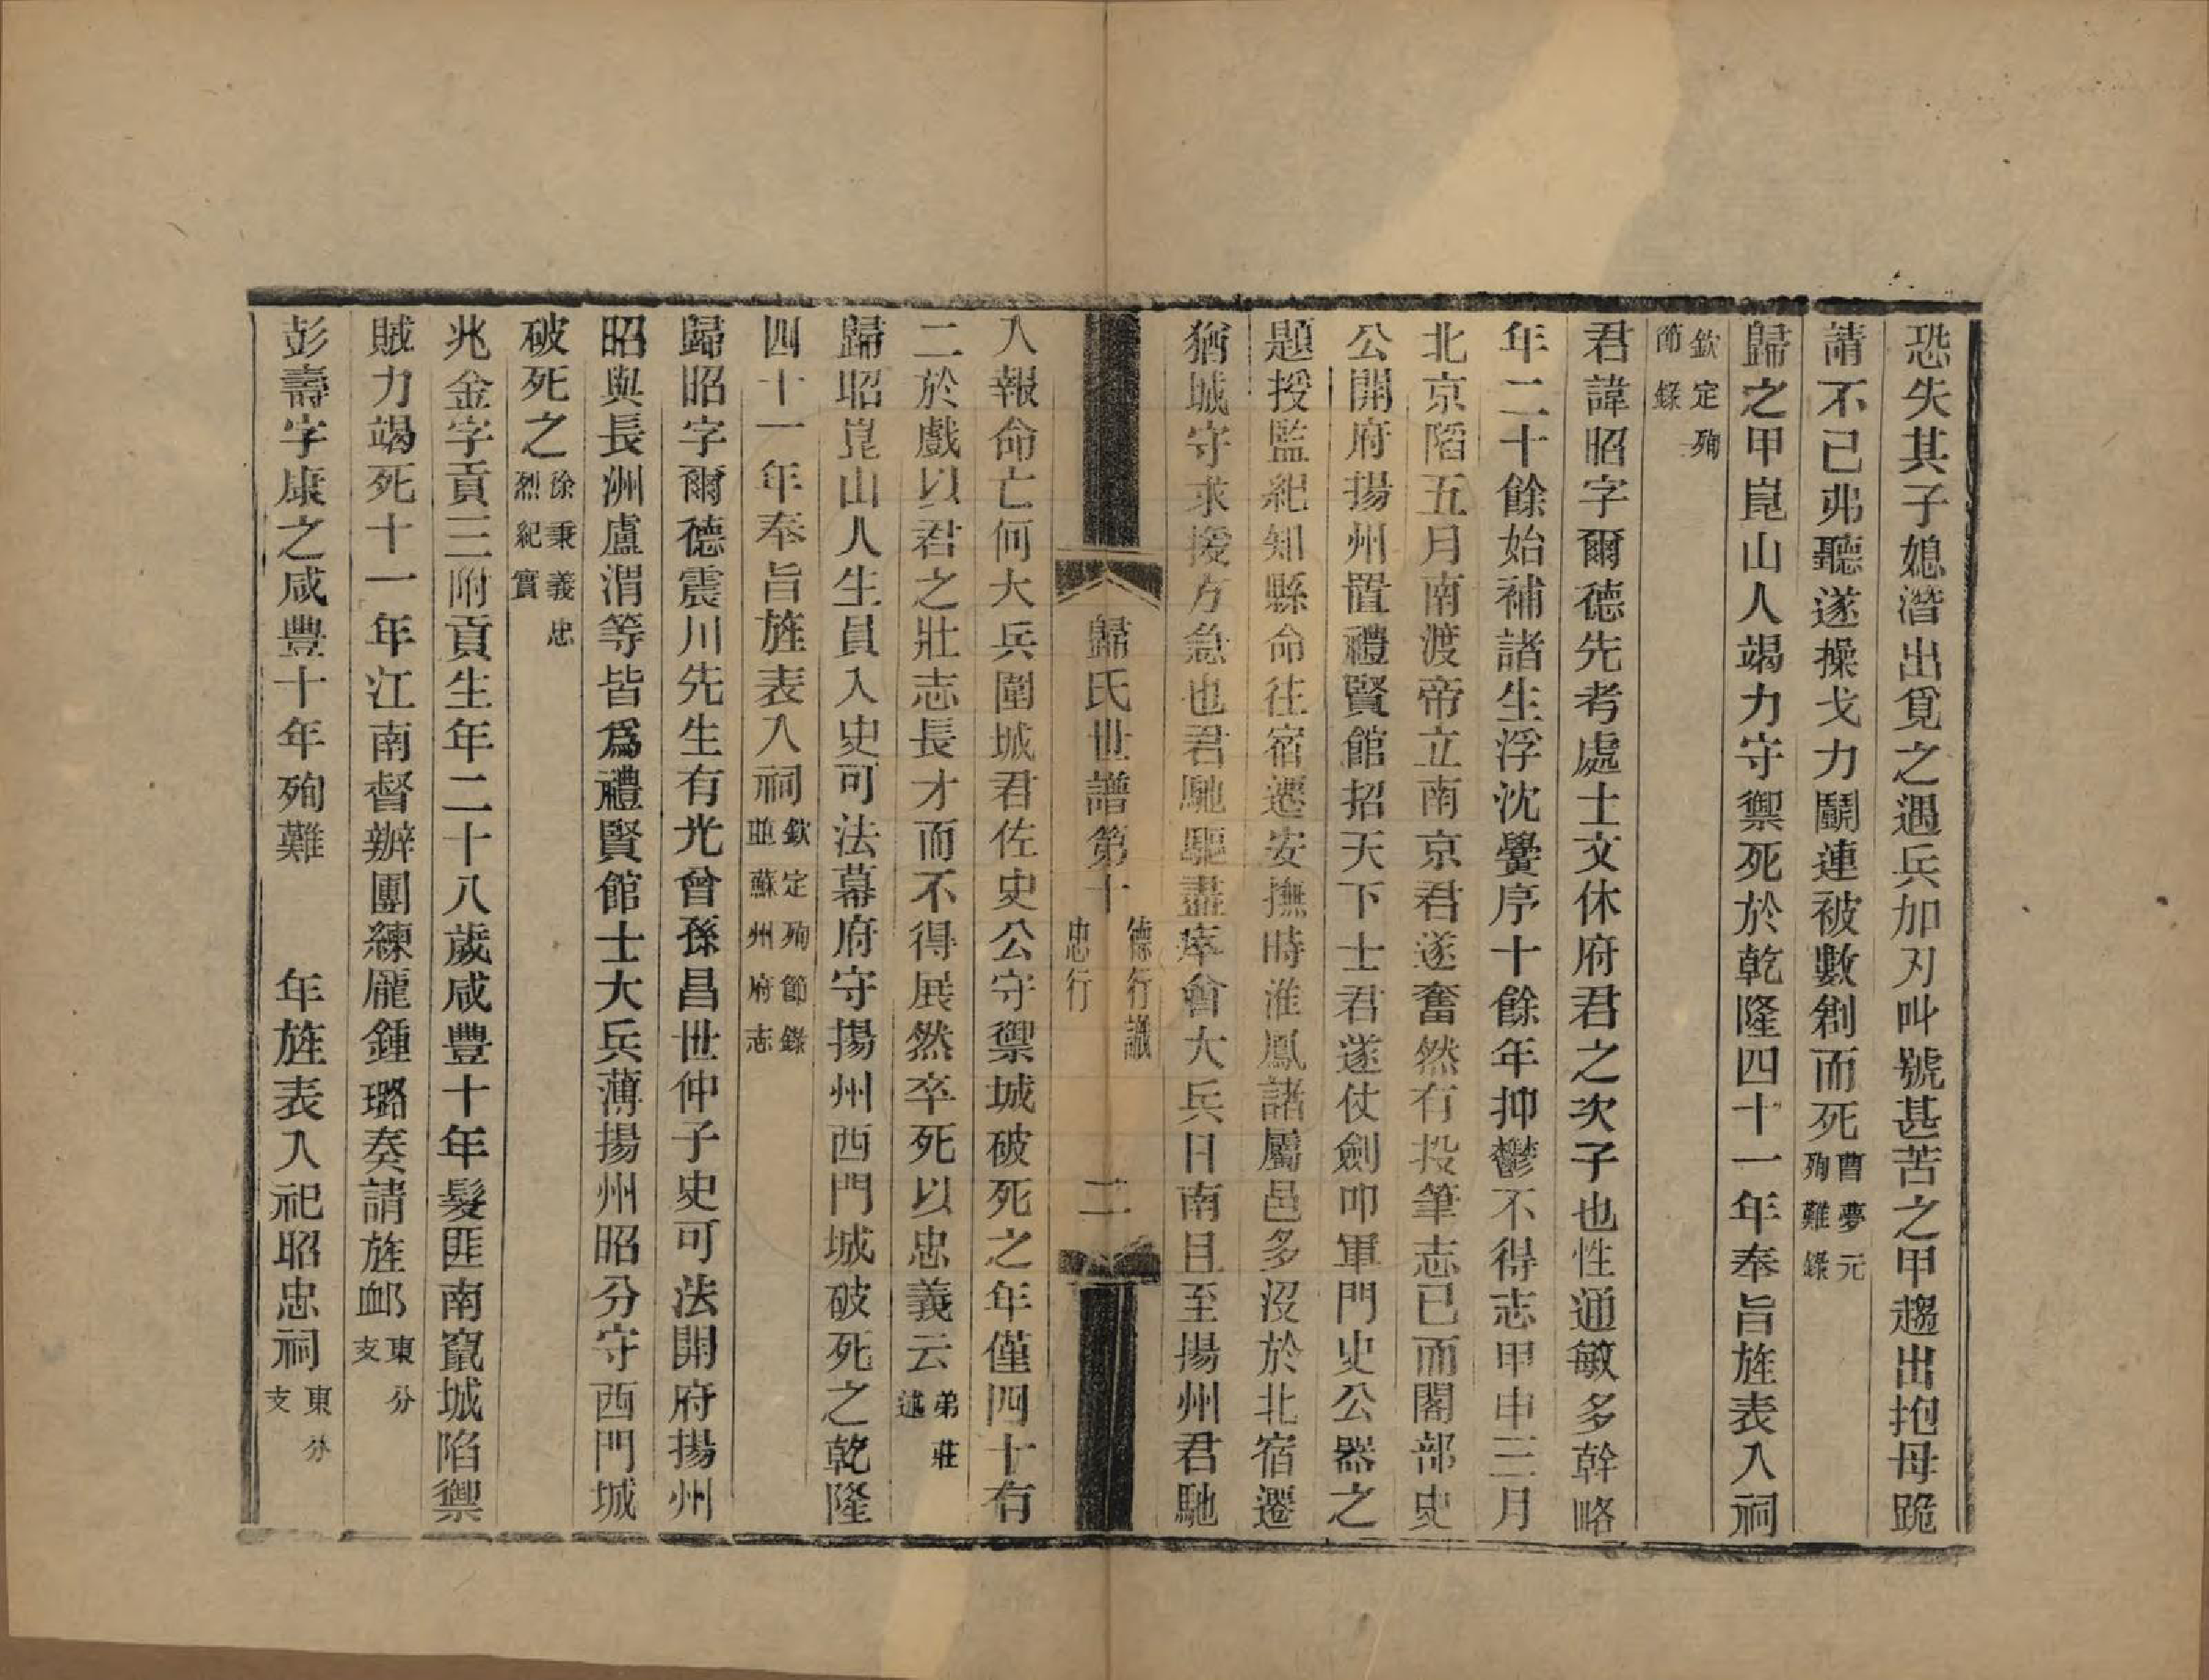 恐失其子媳潛出覓之遇兵加刃叫號甚苦之甲趨出抱母跪
請不已弗聽遂操戈力鬭連被數創而死曹夢元殉難錄
歸之甲崑山人竭力守禦死於乾隆四十一年奉旨旌表入祠
欽定殉節錄
君諱昭字爾德先考處士文休府君之次子也性通敏多幹略
年二十餘始補諸生浮沈黌序十餘年抑鬱不得志甲申三月
北京陷五月南渡帝立南京君遂奮然有投筆志已而閣部史
公開府揚州置禮賢館招天下士君遂仗劍叩軍門史公器之
題授監紀知縣命往宿遷安撫時淮鳳諸屬邑多沒於北宿遷
猶城守求援方急也君馳驅盡瘁會大兵日南且至揚州君馳
歸氏世譜第十 德行議 忠行 二
入報命亡何大兵圍城君佐史公守禦城破死之年僅四十有
二於戲以君之壯志長才而不得展然卒死以忠義云弟莊述
歸昭崑山人生員入史可法幕府守揚州西門城破死之乾隆
四十一年奉旨旌表入祠欽定殉節錄並蘇州府志
歸昭字爾德震川先生有光曾孫昌世仲子史可法開府揚州
昭與長洲盧渭等皆爲禮賢館士大兵薄揚州昭分守西門城
破死之徐秉義忠烈紀實
兆金字貢三附貢生年二十八歲咸豐十年髮匪南竄城陷禦
賊力竭死十一年江南督辦團練龐鍾璐奏請旌卹東分支
彭壽字康之咸豐十年殉難 年旌表入祀昭忠祠東分支